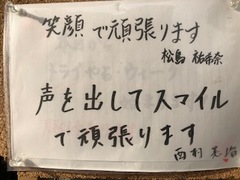 笑顔で頑張ります
松島
声を出してスマイル
で頑張ります
西村